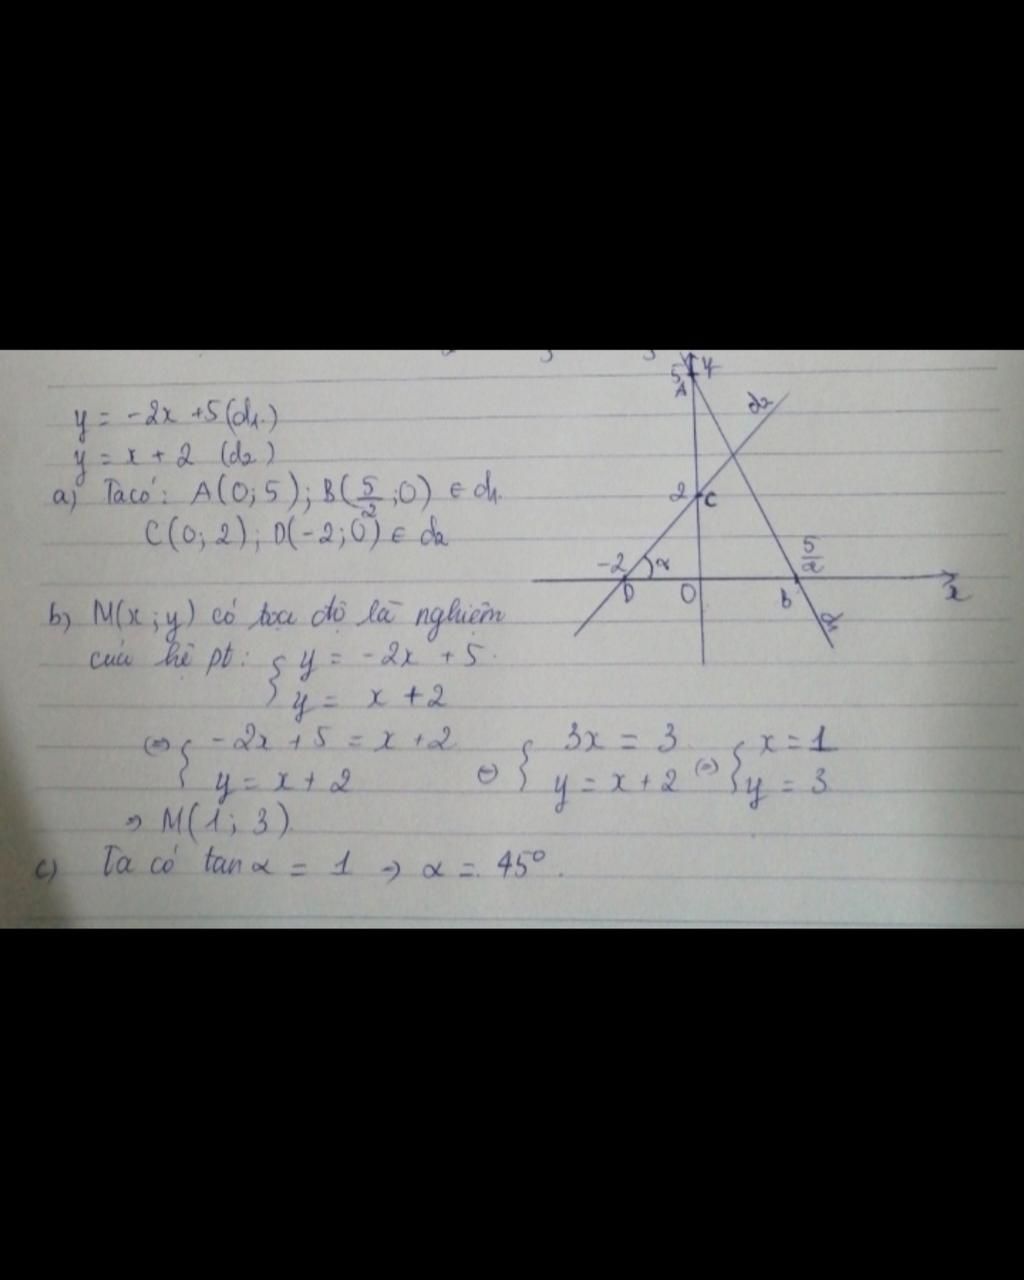 y = -2x + 5 (d1)
y = x + 2 (d2)
a) Ta có: A(0; 5); B(5/2; 0) ∈ d1.
C(0; 2); D(-2; 0) ∈ d2
b) M(x; y) có tọa độ là nghiệm
của hệ pt: { y = -2x + 5.
y = x + 2
⇔ { -2x + 5 = x + 2 ⇔ { 3x = 3 ⇔ { x = 1
y = x + 2 y = x + 2 y = 3
⇒ M(1; 3).
c) Ta có tan α = 1 → α = 45°.
5 y
A
d2
2 C
-2 α 5/2
D O B x
d1